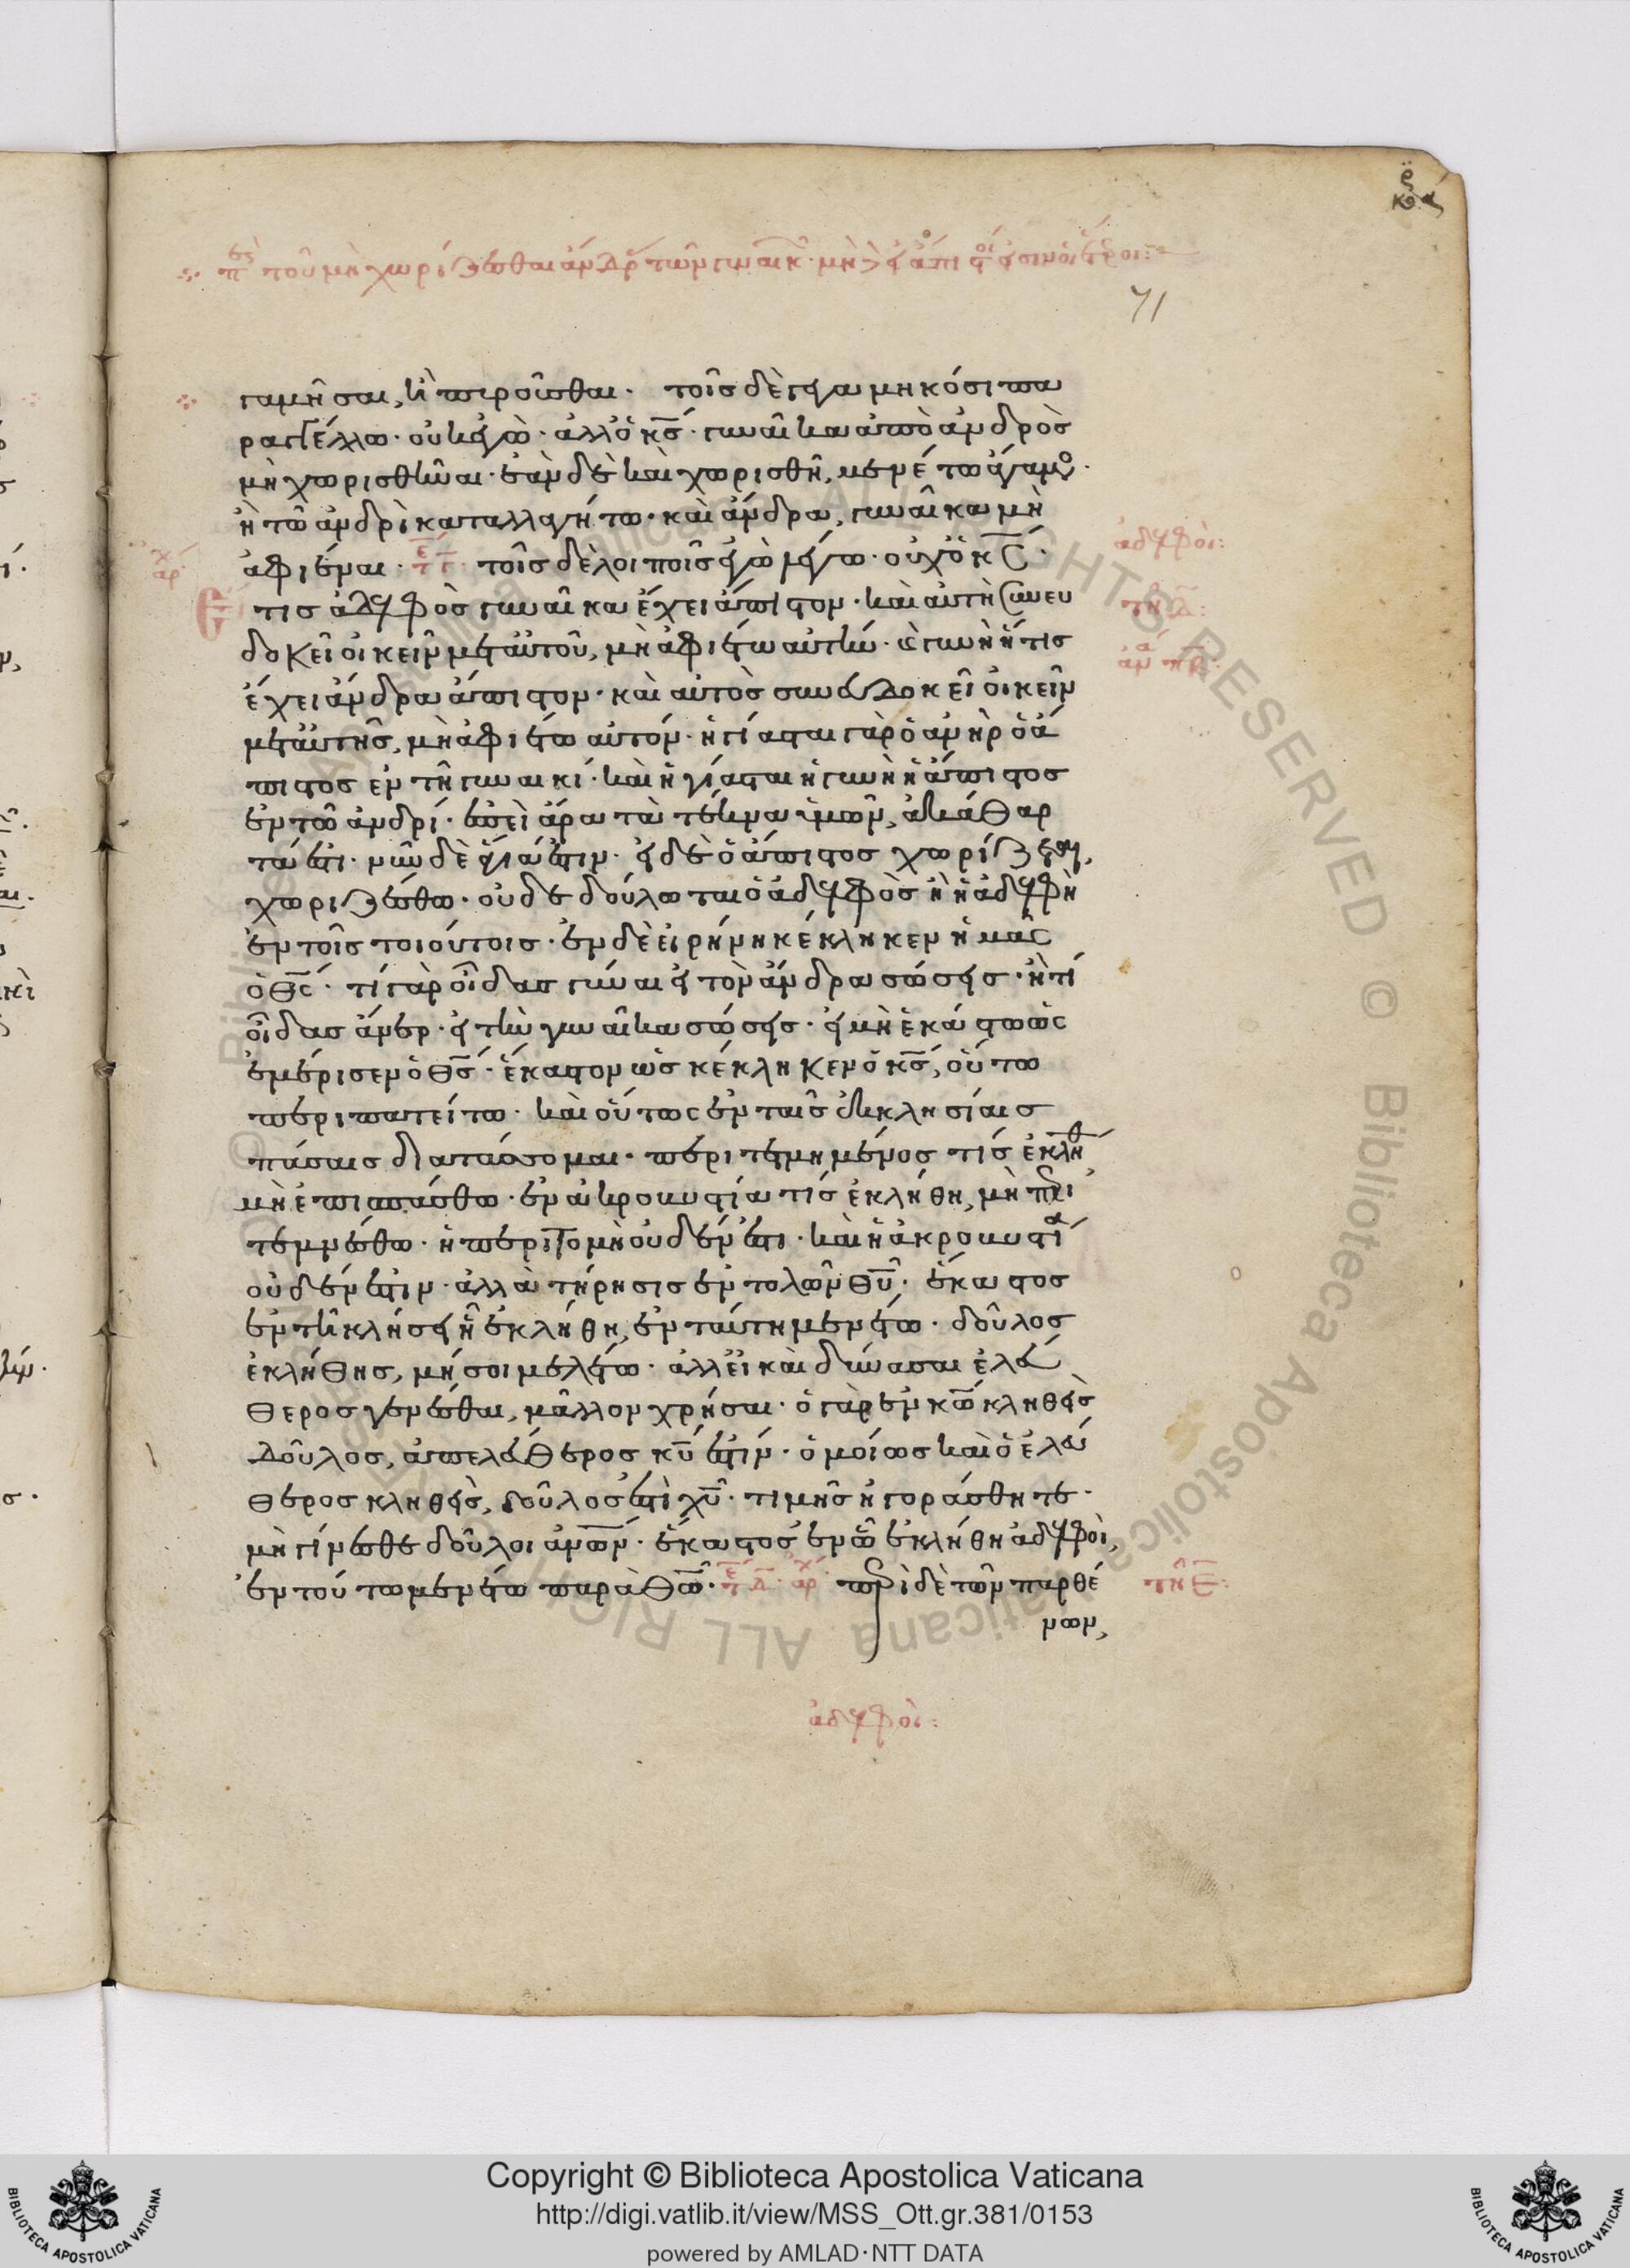 ρκα
περὶ τοῦ μὴ χωρίζεσθαι ἄνδρ τῶν γυναικ μὴ
71
γαμῆσαι, ἢ πυροῦσθαι· τοῖς δὲ γεγαμηκόσι πα
ραγγέλλω· οὐκ ἐγὼ· ἀλλ ὁ κς· γυναῖκα ἀπὸ ἀνδρὸς
μὴ χωρισθῆναι· ἐὰν δὲ καὶ χωρισθῆ, μενέτω ἄγαμο·
ἢ τῶ ἀνδρὶ καταλλαγήτω· καὶ ἄνδρα, γυναῖκα μὴ
ἀφιέναι· τε τοῖς δὲ λοιποῖς ἐγὼ λέγω· οὐχ ὁ κς·
Εἴ τις ἀδελφὸς γυναῖκα ἔχει ἄπιστον· καὶ αὐτὴ συνευ
δοκεῖ οἰκεῖν μετ αὐτοῦ, μὴ ἀφιέτω αὐτήν· καὶ γυνὴ ἥτις
ἔχει ἄνδρα ἄπιστον· καὶ αὐτὸς συνευδοκεῖ οἰκεῖν
μετ αὐτῆς, μὴ ἀφιέτω αὐτόν· ἡγίασται γὰρ ὁ ἀνὴρ ὁ ἄ
πιστος ἐν τῆ γυναικί· καὶ ἡγίασται ἡ γυνὴ ἡ ἄπιστος
ἐν τῶ ἀνδρί· ἐπεὶ ἄρα τὰ τέκνα ὑμῶν, ἀκάθαρ
τά ἐστι· νῦν δὲ ἅγιά ἐστιν· εἰ δὲ ὁ ἄπιστος χωρίζεται,
χωριζέσθω· οὐ δεδούλωται ὁ ἀδελφὸς ἢ ἡ ἀδελφὴ
ἐν τοῖς τοιούτοις· ἐν δὲ εἰρήνη κέκληκεν ἡμᾶς
ὁ θς· τί γὰρ οἶδας γύναι εἰ τὸν ἄνδρα σώσεις· ἢ τί
οἶδας ἄνερ· εἰ τὴν γυναῖκα σώσεις· εἰ μὴ ἑκάστω ὡς
ἐμέρισεν ὁ θς· ἕκαστον ὡς κέκληκεν ὁ κς, οὕτω
περιπατείτω· καὶ οὕτως ἐν ταῖς ἐκκλησίαις
πάσαις διατάσσομαι· περιτετμημένος τίς ἐκλήθ
μὴ ἐπισπάσθω· ἐν ἀκροβυστία τίς ἐκλήθη, μὴ περι
τεμνέσθω· ἡ περιτομὴ οὐδέν ἐστι· καὶ ἡ ἀκροβυστία
οὐδέν ἐστιν· ἀλλὰ τήρησις ἐντολῶν θυ· ἕκαστος
ἐν τῆ κλήσει ἧ ἐκλήθη, ἐν ταύτη μενέτω· δοῦλος
ἐκλήθης, μή σοι μελέτω· ἀλλ εἰ καὶ δύνασαι ἐλεύ
θερος γενέσθαι, μᾶλλον χρῆσαι· ὁ γὰρ ἐν κω κληθεὶς
δοῦλος, ἀπελεύθερος κυ ἐστίν· ὁμοίως καὶ ὁ ἐλεύ
θερος κληθεὶς, δοῦλος ἐστὶ χυ· τιμῆς ἠγοράσθητε·
μὴ γίνεσθε δοῦλοι ἀνων· ἕκαστος ἐν ὧ ἐκλήθη ἀδελφοὶ,
ἐν τούτω μενέτω παρὰ θω· περὶ δὲ τῶν παρθέ
νων,
ἀδελφοὶ:
ἀδελφοὶ:
Copyright © Biblioteca Apostolica Vaticana
http://digi.vatlib.it/view/MSS_Ott.gr.381/0153
powered by AMLAD·NTT DATA
BIBLIOTECA APOSTOLICA VATICANA
BIBLIOTECA APOSTOLICA VATICANA